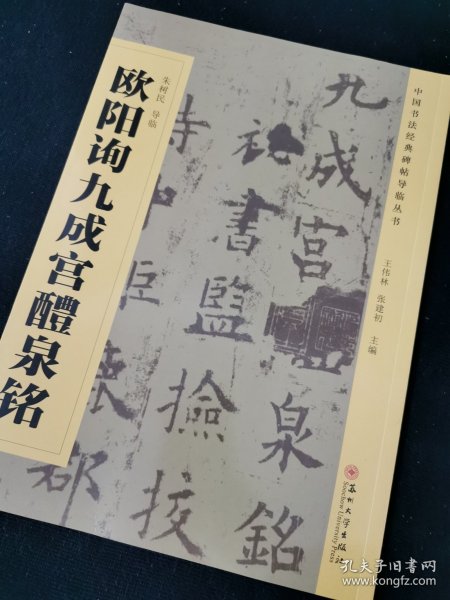 欧阳询九成宫醴泉铭
朱树民 导临
中国书法经典碑帖导临丛书
王伟林 张建初 主编
九成宫醴泉銘
祕書監撿挍
侍中鉅
郡
苏州大学出版社
Soochow University Press
孔夫子旧书网
www.kongfz.com